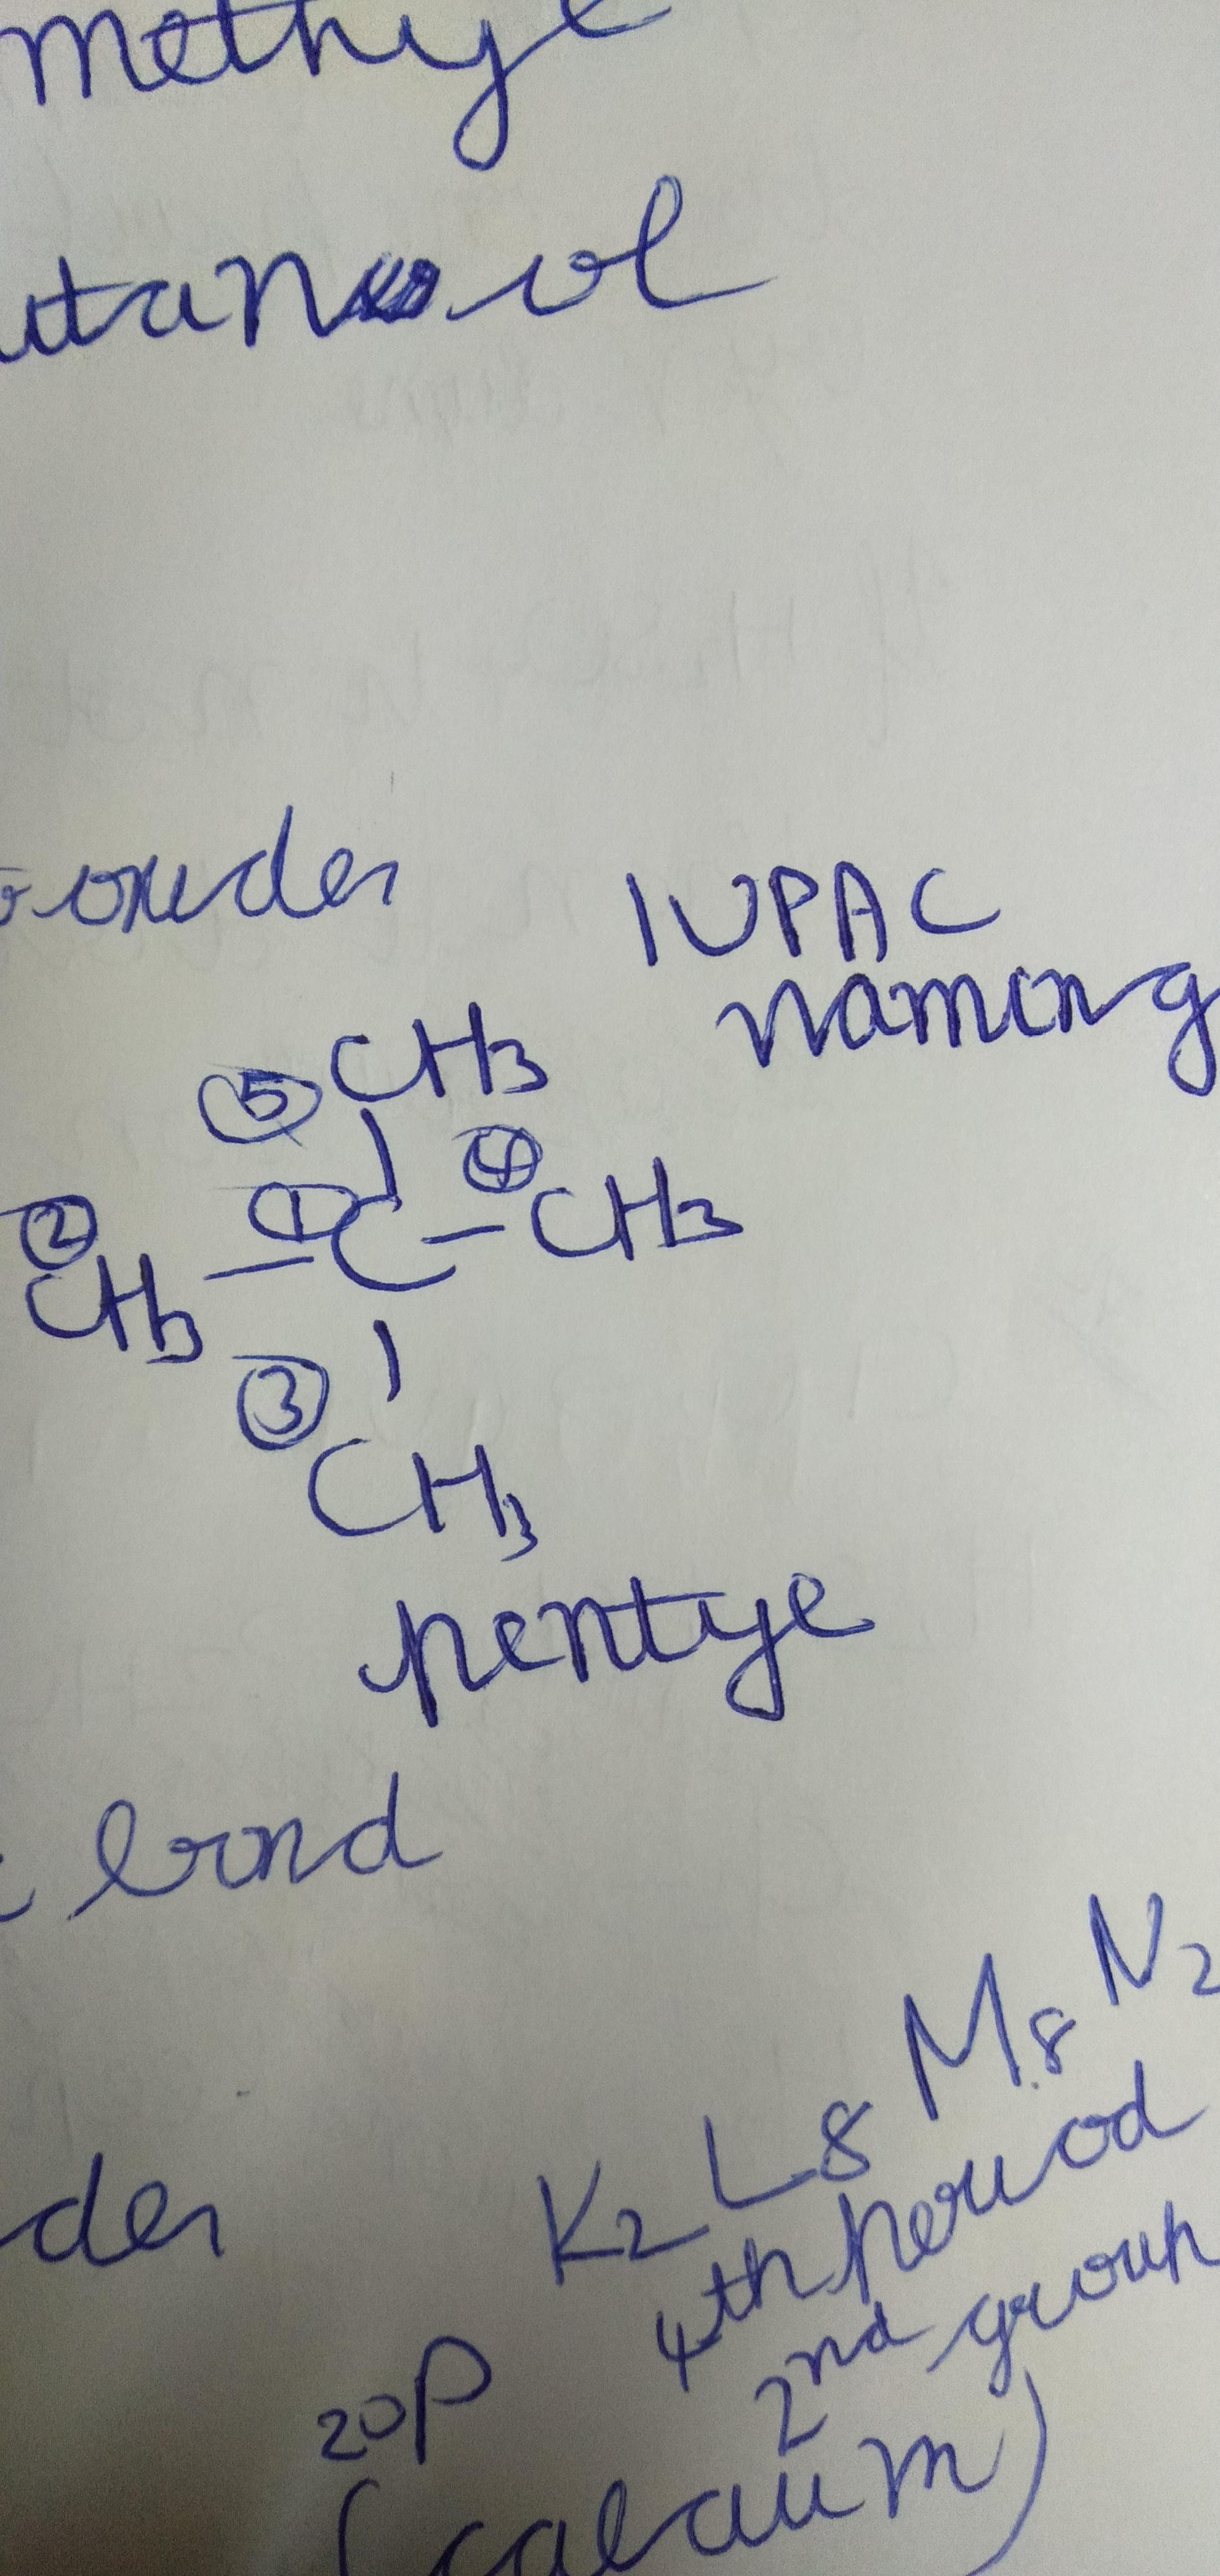 methyl
utan ol
IUPAC
naming
⑤ CH3
② ① ④
CH3 – C – CH3
③
CH3
pentyl
bond
K2 L8 M8 N2
der
4th period
2nd group
20P
(calcium)